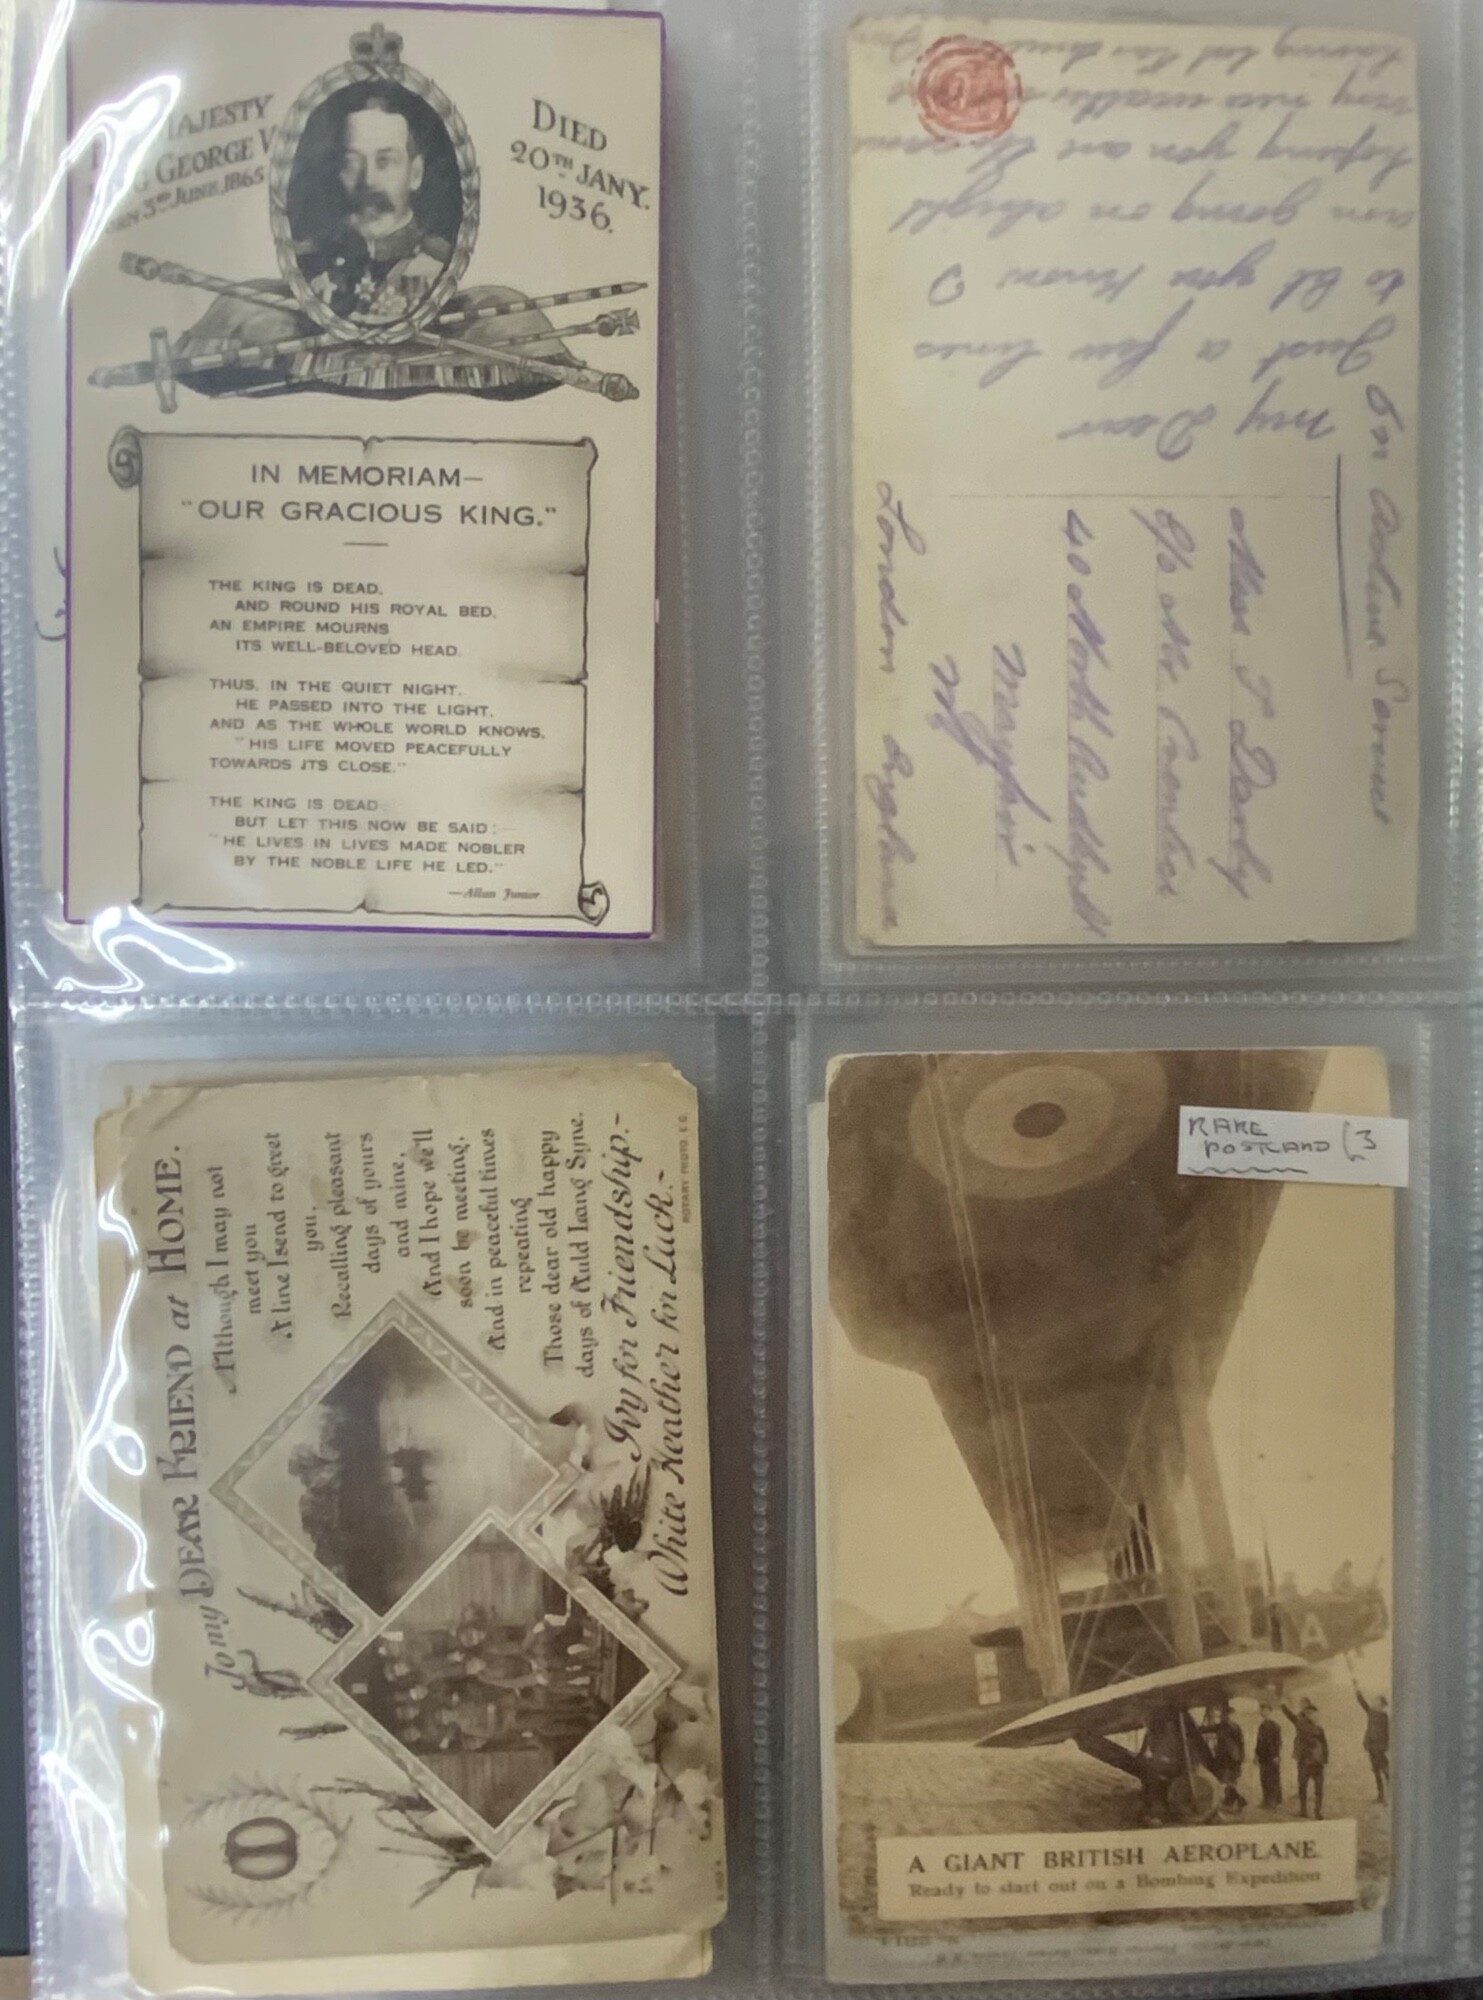 MAJESTY
GEORGE V
3RD JUNE 1865
DIED
20TH JANY.
1936.
IN MEMORIAM—
"OUR GRACIOUS KING."
THE KING IS DEAD,
AND ROUND HIS ROYAL BED,
AN EMPIRE MOURNS
ITS WELL-BELOVED HEAD.
THUS, IN THE QUIET NIGHT,
HE PASSED INTO THE LIGHT,
AND AS THE WHOLE WORLD KNOWS,
"HIS LIFE MOVED PEACEFULLY
TOWARDS ITS CLOSE."
THE KING IS DEAD
BUT LET THIS NOW BE SAID:—
"HE LIVES IN LIVES MADE NOBLER
BY THE NOBLE LIFE HE LED."
—Allan Junior.
On Active Service
My Dear
Just a few lines
to let you know I
am going on alright
hoping you are the same
my
having had
Miss J Darby
C/o Mr
40 North Audley St
Mayfair
W
London England
To my DEAR FRIEND at HOME.
Although I may not
meet you
A line I send to greet
you,
Recalling pleasant
days of yours
and mine,
And I hope we'll
soon be meeting,
And in peaceful times
repeating
Those dear old happy
days of Auld Lang Syne.
Ivy for Friendship.-
White Heather for Luck.-
ROTARY PHOTO. E.C.
RARE
POSTCARD £3
A
A GIANT BRITISH AEROPLANE.
Ready to start out on a Bombing Expedition